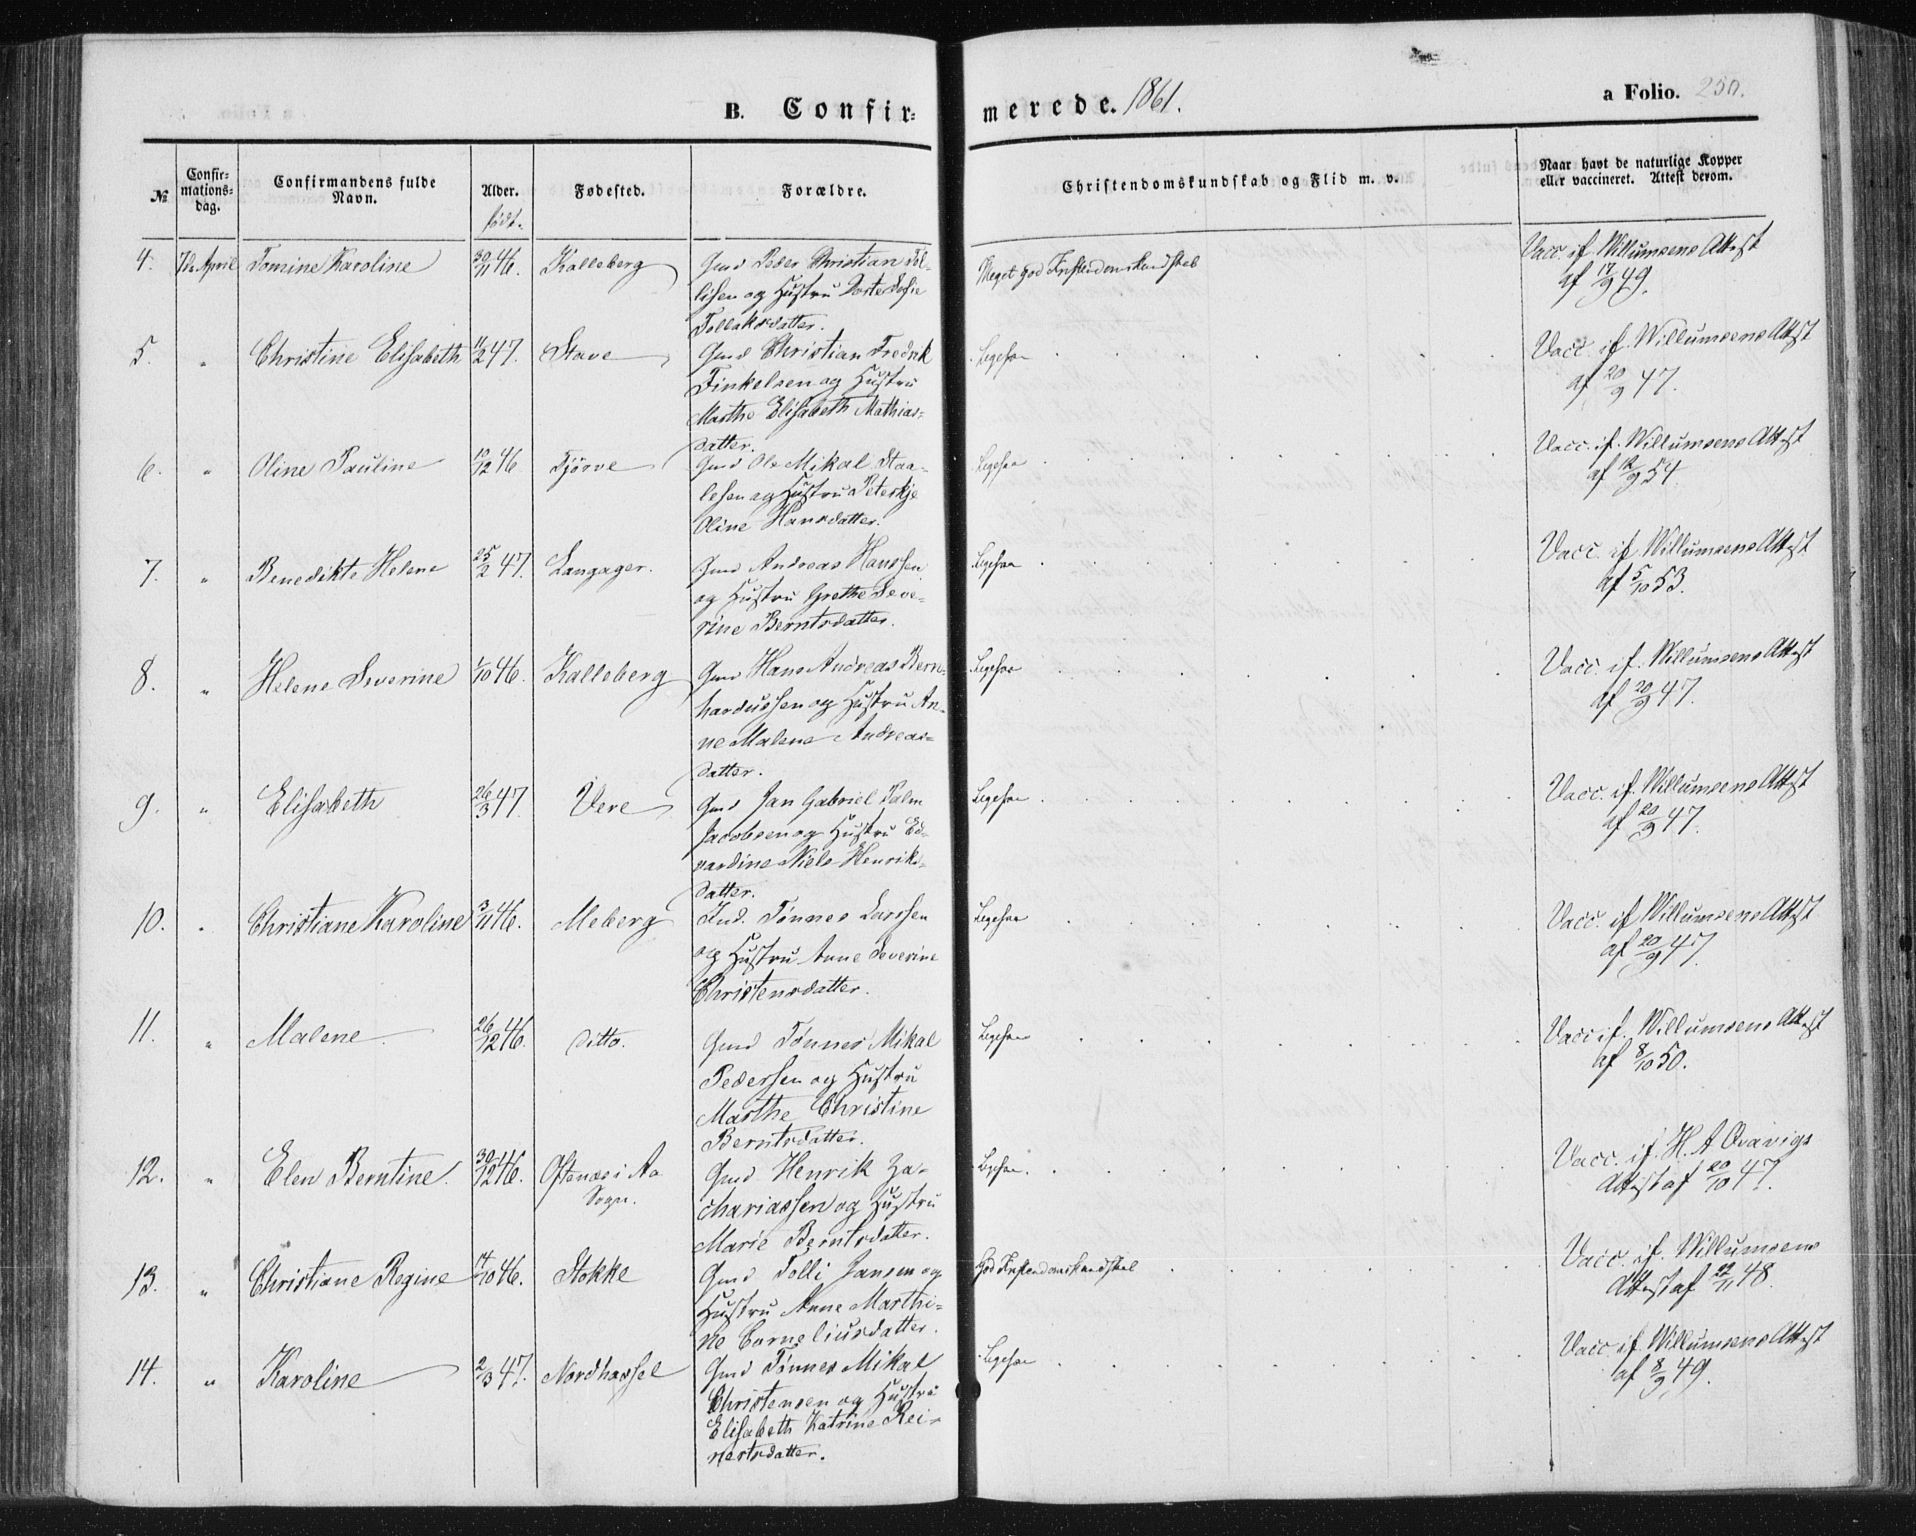 B. Confir-
merede. 1861.
a Folio. 250.
No
Confir-
mations-
dag.
Confirmandens fulde
Navn.
Alder.
født.
Fødested.
Forældre.
Christendomskundskab og Flid m. v.
Naar havt de naturlige Kopper
eller vaccineret. Attest derom.
4. 7de April Tomine Karoline 30/11 46. Kalleberg Gmd Peder Christian Tol-
lisen og Hustru Dorte Sofie
Tollaksdatter.
Meget god Kristendomskundskab
Vacc. if. Willumsens Attest
af 17/9 49.
5. " Christine Elisabeth 11/2 47. Stave Gmd Christian Fredrik
Finkelsen og Hustru
Marthe Elisabeth Mathias-
datter.
Ligesaa
Vacc. if. Willumsens Attest
af 20/9 47.
6. " Oline Pauline 10/12 46 Tjörve Gmd Ole Mikal Staa-
lesen og Hustru Peterkje
Oline Hansdatter.
Ligesaa
Vacc. if. Willumsens Attest
af 12/9 54.
7. " Benedikte Helene 25/2 47. Langager. Gmd Andreas Hanssen
og Hustru Grethe Seve-
rine Berntsdatter.
Ligesaa
Vacc. if Willumsens Attest
af 5/10 53.
8. " Helene Severine 1/10 46. Kalleberg Gmd Hans Andreas Bern-
hardussen og Hustru An-
ne Malene Andreas-
datter.
Ligesaa
Vacc. if. Willumsens Attest
af 20/9 47.
9. " Elisabeth 26/3 47 Vere Gmd Jan Gabriel Palm
Jacobsen og Hustru Ed-
vardine Niels Henriks-
datter.
Ligesaa
Vacc. if. Willumsens Attest
af 20/9 47.
10. " Christiane Karoline 3/11 46. Meberg Ind. Tønnes Larssen
og Hustru Anne Severine
Christensdatter.
Ligesaa
Vacc. if Willumsens Attest
af 20/9 47.
11. " Malene 26/12 46. ditto. Gmd Tønnes Mikal
Pedersen og Hustru
Marthe Christine
Berntsdatter.
Ligesaa
Vacc if. Willumsens Attest
af 8/10 50.
12. " Elen Berntine. 30/12 46. Østenæs i Aa
Sogn.
Gmd Henrik Za-
chariassen og Hustru
Marie Berntsdatter.
Ligesaa
Vacc. if. H. A
Attest af 20/10 47.
13. " Christiane Regine 14/10 46. Stokke Gmd Tolli Jansen og
Hustru Anne Marthi-
ne Corneliusdatter.
God Kristendomskundskab
Vacc. if. Willumsens
Attest af 22/11 48.
14. " Karoline 2/3 47. Nordhassel Gmd Tønnes Mikal
Christensen og Hustru
Elisabeth Katrine Rei-
nertsdatter.
Ligesaa
Vacc. if. Willumsens Attest
af 8/9 49.